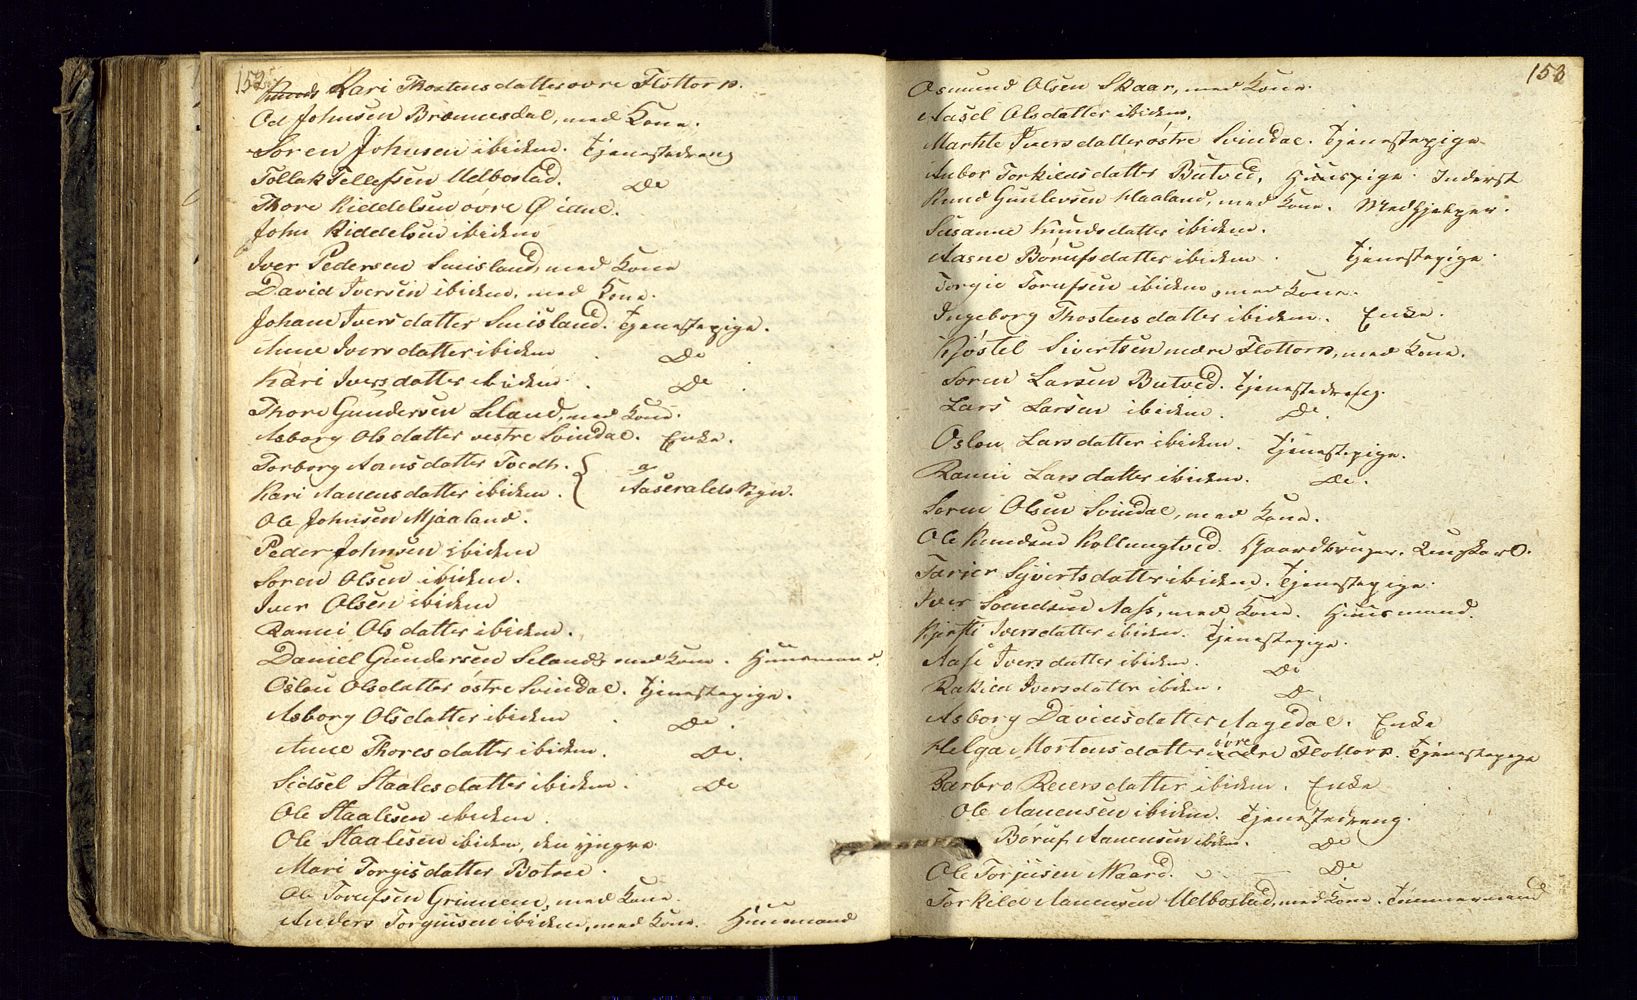 152.
Kari Thostensdatter ovre Flottorp.
Od Johnsen Bromesdal, med Kone.
Soren Johnsen ibidem. Tjenestedreng
Tollak Tellefsen Udbostad. Do
Thore Kiddelsen ovre Øidne.
John Kiddelsen ibidem
Iver Pedersen Smisland, med Kone
David Iversen ibidem, med Kone.
Johane Iversdatter Smisland. Tjenestepige.
Anne Iversdatter ibidem . Do
Kari Iversdatter ibidem . Do .
Thore Gundersen Leland, med Kone.
Asborg Olsdatter vestre Svindal. Enke.
Torborg Aansdatter Tvedt.
Kari Aanensdatter ibidem . } Aaseralds Sogn.
Ole Johnsen Mjaaland.
Peder Johnsen ibidem
Soren Olsen ibidem.
Iver Olsen ibidem
Ranni Olsdatter ibidem.
Daniel Gundersen Seland, med Kone. Huusmand.
Oslou Olsdatter østre Svindal. Tjenestepige.
Asborg Olsdatter ibidem . Do .
Anne Thoresdatter ibidem. Do.
Sidsel Staalesdatter ibidem. Do
Ole Staalesen ibidem.
Ole Staalesen ibidem, den yngre.
Mari Torgisdatter Botne.
Ole Torufsen Grimmen, med Kone.
Anders Torgiusen ibidem, med Kone. Huusmand
153
Osmund Olsen Skaar, med Kone.
Aasel Olsdatter ibidem.
Marthe Iversdatter østre Svindal. Tjenestepige
Anbor Torkildsdatter Butved, Huuspige. Inderst
Knud Gunlevsen Haaland, med Kone. Medhjelper.
Susanne Knudsdatter ibidem.
Aasne Børufsdatter ibidem . Tjenestepige.
Torgie Torufsen ibidem, med Kone.
Ingeborg Thostensdatter ibidem. Enke.
Kjøstel Sivertsen nedre Flottorp, med Kone.
Soren Larsen Butved. Tjenestedreng.
Lars Larsen ibidem. Do.
Oslou Larsdatter ibidem. Tjenestepige.
Ranni Larsdatter ibidem. Do.
Soren Olsen Svindal, med Kone.
Ole Knudsen Kollungtved. Gaardbruger. Ungkarl.
Tarjer Syvertsdatter ibidem. Tjenestepige.
Iver Aass, med Kone. Huusmand.
Kjersti Iversdatter ibidem. Tjenestepige.
Aase Iversdatter ibidem. Do
Rakild Iversdatter ibidem. Do
Asborg Davidsdatter Aagedal. Enke
Helga Mortensdatter øvre Flottorp. Tjenestepige
Barbro Reiersdatter ibidem. Enke
Ole Aanensen ibidem. Tjenestedreng.
Børuf Aanensen ibidem. Do
Ole Torjusen Do.
Torkild Aanensen Udbostad, med Kone. Tømmermand